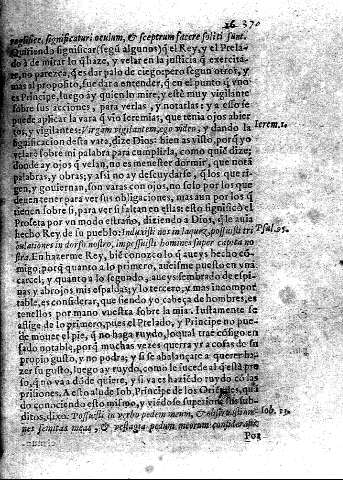 16 37
significe, significaturi oculum, & sceptrum facere soliti sunt.
Queriendo significar (segũ algunos) q̃ el Rey, y el Prela-
do à de mirar lo q̃ haze, y velar en la justicia q̃ exercita-
re, no parezca, q̃ es dar palo de ciego: pero segun otros, y
mas al proposito, fue dar a entender, q̃ en el punto q̃ vno
es Principe, luego ay quien lo mire, y estè muy vigilante
sobre sus acciones, para verlas, y notarlas: y a esso se
puede aplicar la vara q̃ vio Ieremias, que tenia ojos abier
tos, y vigilantes: Virgam vigilantem, ego video, y dando la
Ierem. 1.
significacion desta vara, dize Dios: bien as visto, porq̃ yo
velarè sobre mi palabra para cumplirla, como quiē dize;
donde ay ojos q̃ velan, no es menester dormir, que notã
palabras, y obras; y assi no ay descuydarse, q̃ los que ri-
gen, y gouiernan, son varas con ojos, no solo por los que
deuen tener para ver sus obligaciones, mas aun por los q̃
tienen sobre si, para ver si faltan en ellas: esto significò el
Profeta por vn modo estraño, diziendo a Dios, q̃ le auia
hecho Rey de su pueblo: Induxisti nos in laqueũ, posuisti tri
Psal. 65.
bulationes in dorso nostro, imposuisti homines super capita no
stra. En hazerme Rey, biē conozco lo q̃ aueys hecho cõ-
migo, porq̃ quanto a lo primero, aueisme puesto en vna
carcel, y quanto a lo segundo, aueys sembrado de espi-
nas y abrojos mis espaldas; y lo tercero, y mas incompor
table, es considerar, que siendo yo cabeça de hombres, es
tenellos por mano vuestra sobre la mia. Iustamente se
aflige de lo primero, pues el Prelado, y Principe no pue-
de mouer el pie, q̃ no haga ruydo, lo qual trae cõsigo en-
fado notable, porq̃ muchas vezes querra yr a cosas de su
propio gusto, y no podra; y si se abalançare a querer ha-
zer su gusto, luego ay ruydo, como le sucede al q̃ està pre
so, q̃ no va a dõde quiere, y si va es haziēdo ruydo cõ las
prisiones. A esto alude Iob, Principe de los Orientales, quã
do conociendo esto mismo, y viédose superior a sus sub-
ditos, dixo. Posuisti in neruo pedem meum, & obseruasti om-
Iob. 13.
nes semitas meas, & vestigia pedum meorum considerasti.
Por